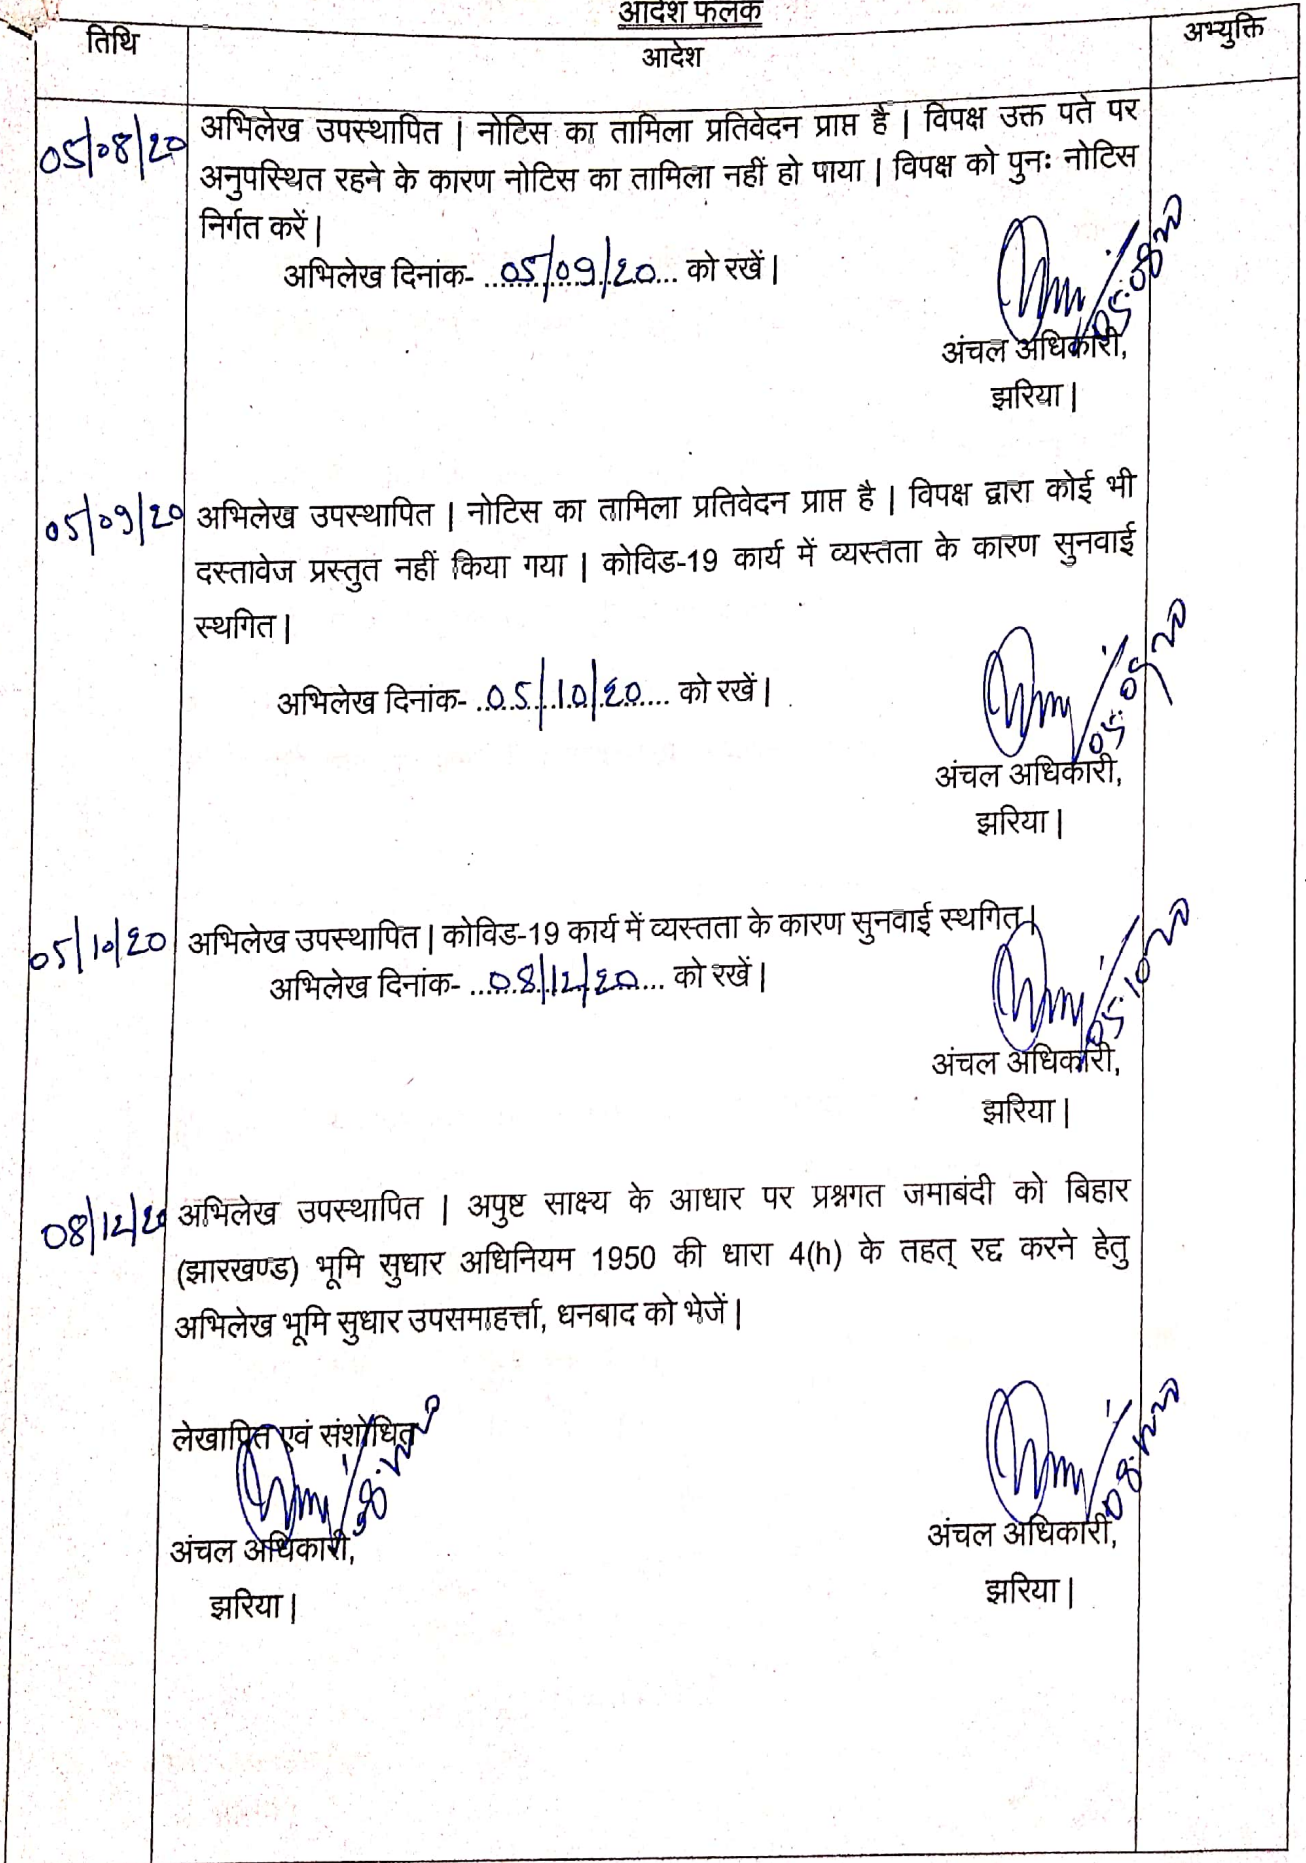 आदेश फलक
तिथि
आदेश
अभ्युक्ति
05/08/20
अभिलेख उपस्थापित | नोटिस का तामिला प्रतिवेदन प्राप्त है | विपक्ष उक्त पते पर
अनुपस्थित रहने के कारण नोटिस का तामिला नहीं हो पाया | विपक्ष को पुनः नोटिस
निर्गत करें |
अभिलेख दिनांक- ...05/09/20... को रखें |
05.08.20
अंचल अधिकारी,
झरिया |
05/09/20
अभिलेख उपस्थापित | नोटिस का तामिला प्रतिवेदन प्राप्त है | विपक्ष द्वारा कोई भी
दस्तावेज प्रस्तुत नहीं किया गया | कोविड-19 कार्य में व्यस्तता के कारण सुनवाई
स्थगित |
अभिलेख दिनांक- ...05/10/20... को रखें |
05.09.20
अंचल अधिकारी,
झरिया |
05/10/20
अभिलेख उपस्थापित | कोविड-19 कार्य में व्यस्तता के कारण सुनवाई स्थगित |
अभिलेख दिनांक- ...08/12/20... को रखें |
05.10.20
अंचल अधिकारी,
झरिया |
08/12/20
अभिलेख उपस्थापित | अपुष्ट साक्ष्य के आधार पर प्रश्नगत जमाबंदी को बिहार
(झारखण्ड) भूमि सुधार अधिनियम 1950 की धारा 4(h) के तहत् रद्द करने हेतु
अभिलेख भूमि सुधार उपसमाहर्त्ता, धनबाद को भेजें |
लेखापित एवं संशोधित
अंचल अधिकारी,
झरिया |
08.12.20
अंचल अधिकारी,
झरिया |